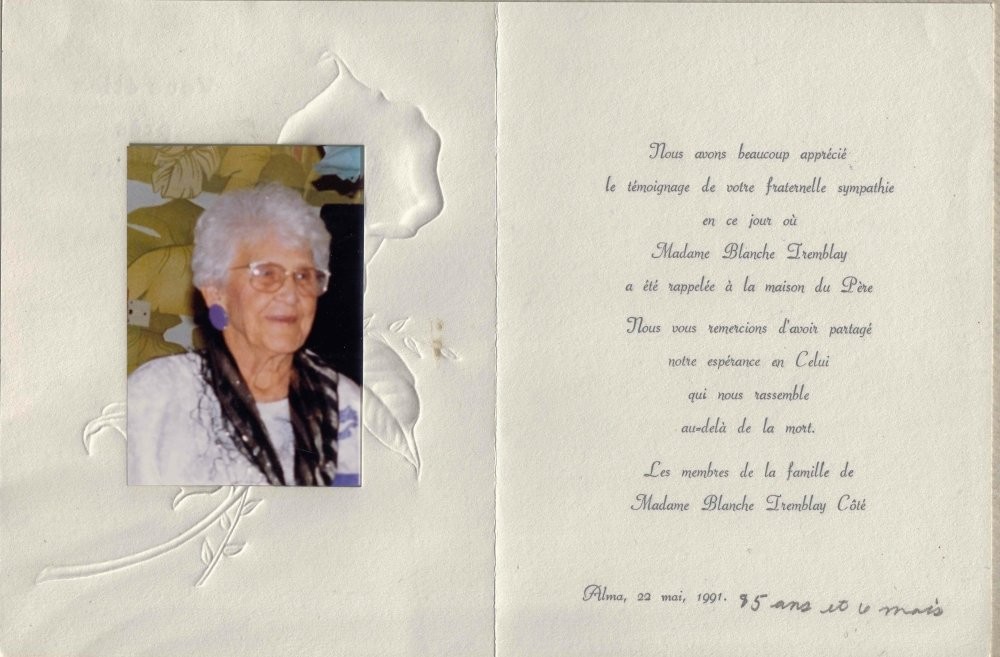 Nous avons beaucoup apprécié
le témoignage de votre fraternelle sympathie
en ce jour où
Madame Blanche Tremblay
a été rappelée à la maison du Père
Nous vous remercions d'avoir partagé
notre espérance en Celui
qui nous rassemble
au-delà de la mort.
Les membres de la famille de
Madame Blanche Tremblay Côté
Alma, 22 mai, 1991. 85 ans et 6 mois